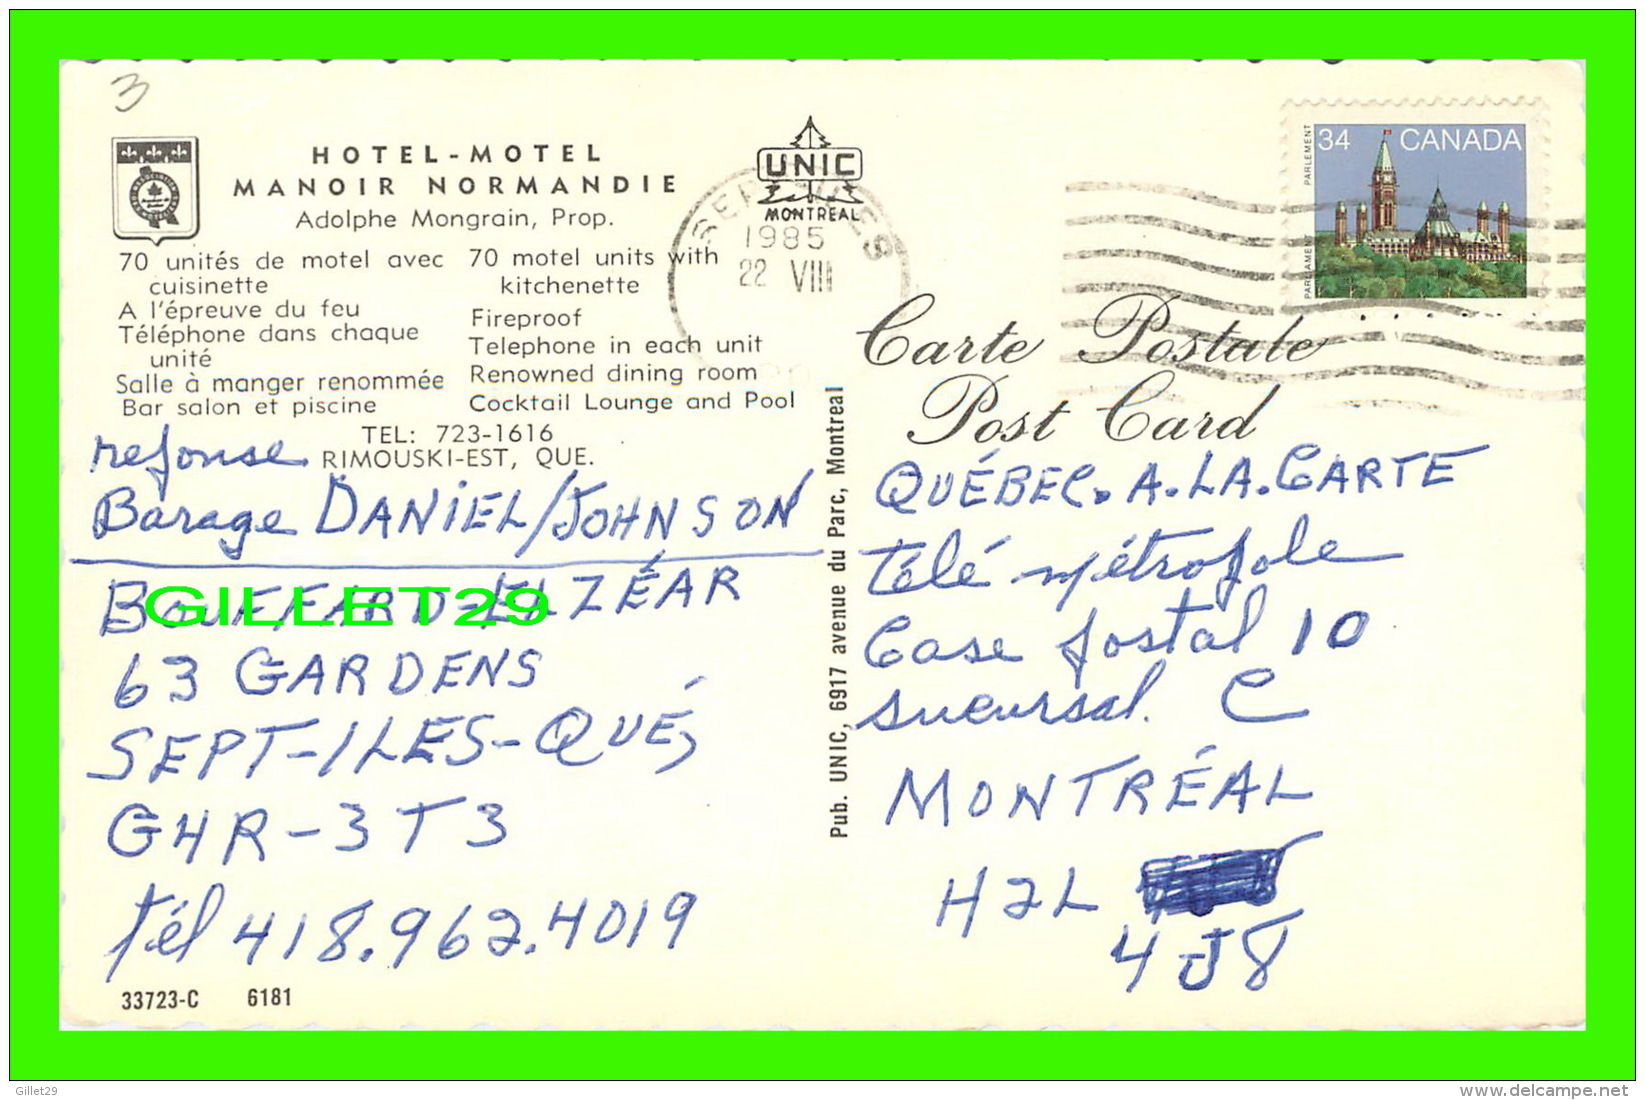 3
HOTEL-MOTEL
MANOIR NORMANDIE
Adolphe Mongrain, Prop.
70 unités de motel avec
cuisinette
A l'épreuve du feu
Téléphone dans chaque
unité
Salle à manger renommée
Bar salon et piscine
70 motel units with
kitchenette
Fireproof
Telephone in each unit
Renowned dining room
Cocktail Lounge and Pool
TEL: 723-1616
RIMOUSKI-EST, QUE.
reponse
Barage DANIEL/JOHNSON
BOUFFARD-ELZÉAR
GILLET29
63 GARDENS
SEPT-ILES-QUÉ,
G4R-3T3
tél 418.962.4019
33723-C 6181
UNIC
MONTREAL
1985
22 VIII
34 CANADA
PARLIAMENT PARLEMENT
Carte Postale
Post Card
Pub. UNIC, 6917 avenue du Parc, Montreal
QUÉBEC. A. LA. CARTE
télé métropole
Case postal 10
sucursal. C
MONTRÉAL
H2L
4J8
Gillet29
www.delcampe.net